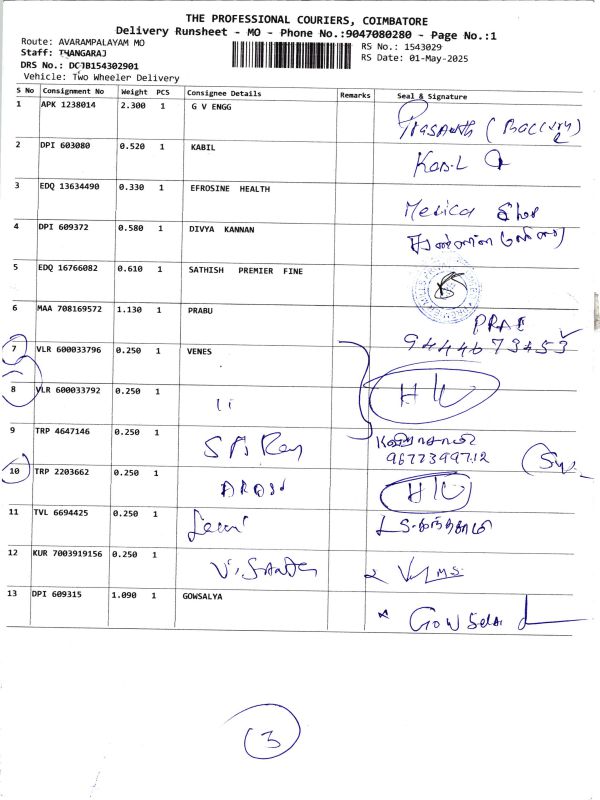 THE PROFESSIONAL COURIERS, COIMBATORE
Delivery Runsheet - MO - Phone No.:9047080280 - Page No.:1
Route: AVARAMPALAYAM MO
RS No.: 1543029
Staff: THANGARAJ
RS Date: 01-May-2025
DRS No.: DCJB154302901
Vehicle: Two Wheeler Delivery
S No Consignment No Weight PCS Consignee Details Remarks Seal & Signature
1 APK 1238014 2.300 1 G V ENGG
Prasanth
2 DPI 603080 0.520 1 KABIL
3 EDQ 13634490 0.330 1 EFROSINE HEALTH
Medical
4 DPI 609372 0.580 1 DIVYA KANNAN
5 EDQ 16766082 0.610 1 SATHISH PREMIER FINE
6 MAA 708169572 1.130 1 PRABU
9444673453
7 VLR 600033796 0.250 1 VENES
8 VLR 600033792 0.250 1 11 H/L
9 TRP 4647146 0.250 1
9677399712
10 TRP 2203662 0.250 1 H/L
11 TVL 6694425 0.250 1
12 KUR 7003919156 0.250 1
13 DPI 609315 1.090 1 GOWSALYA
3